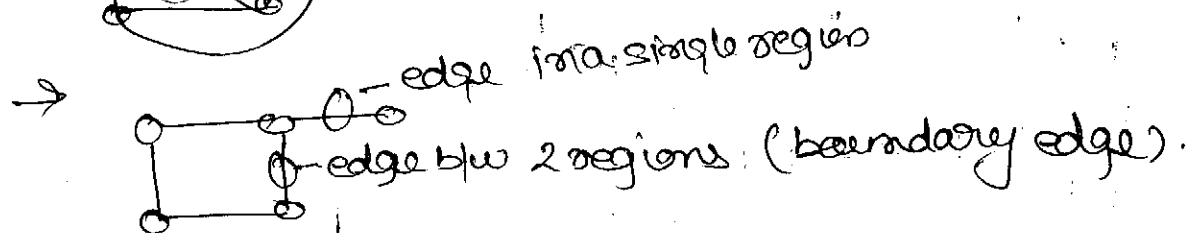 → edge in a single region
edge b/w 2 regions. (boundary edge).